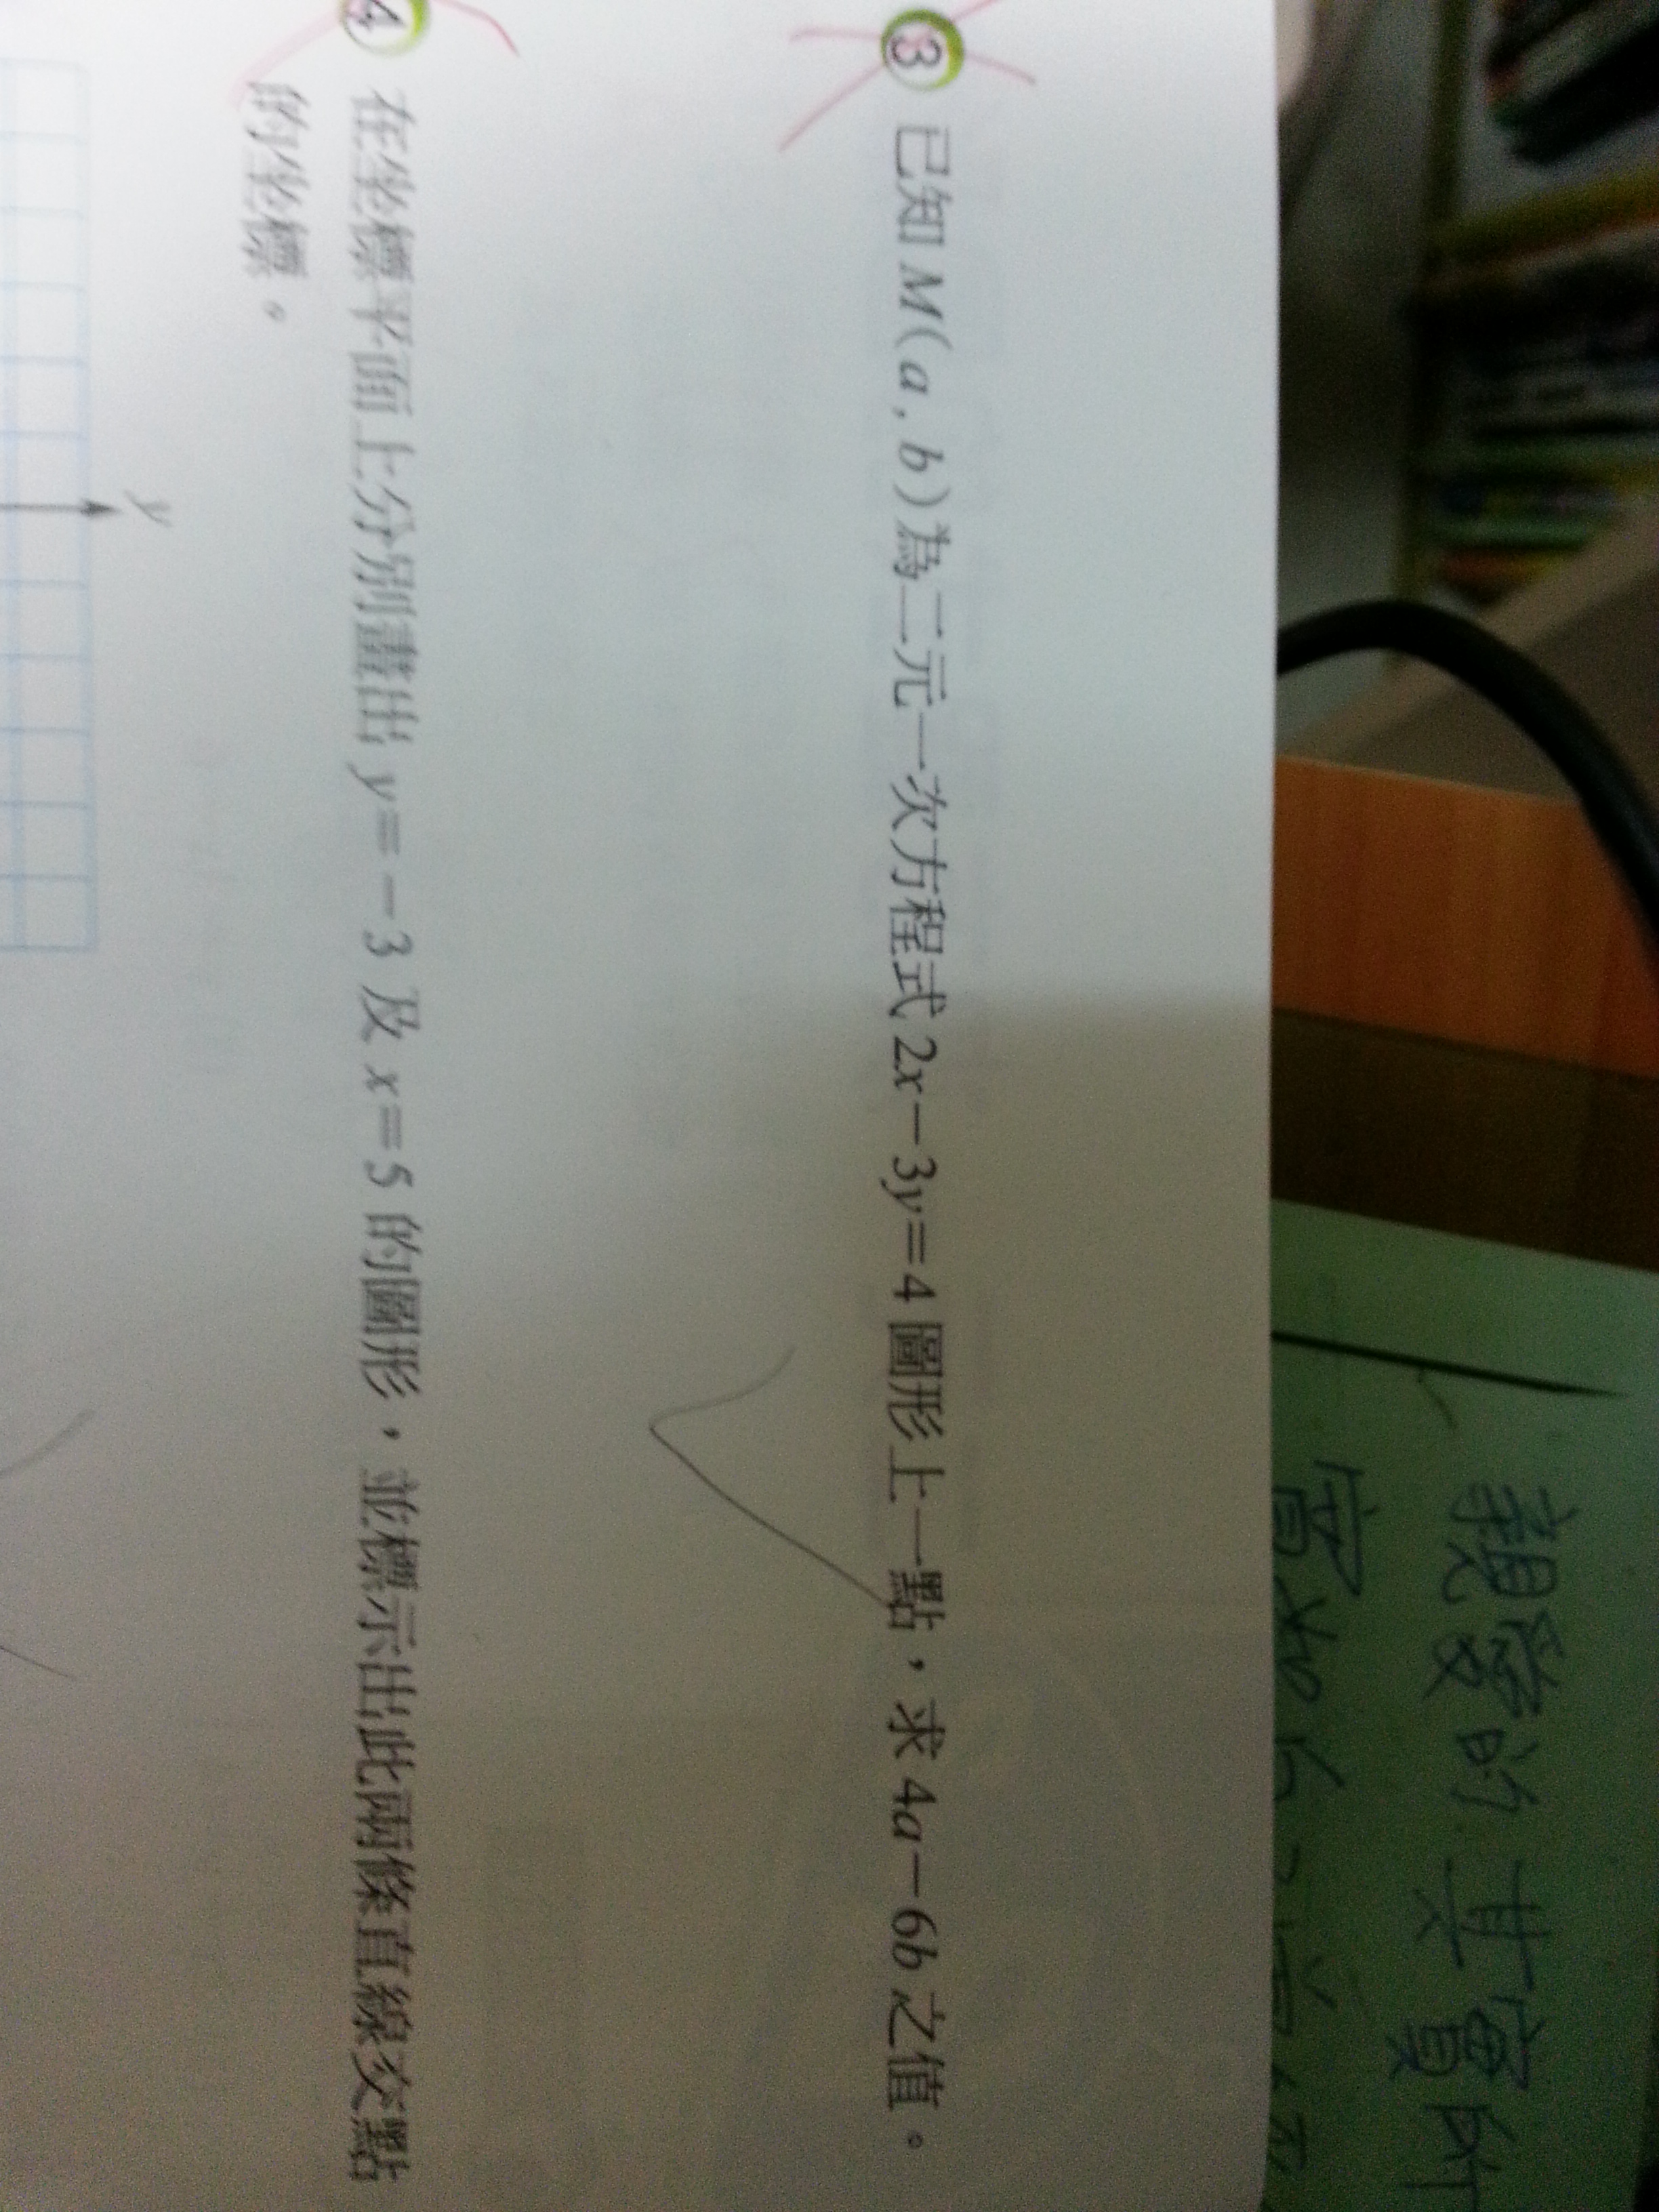 3 已知 M(a, b) 為二元一次方程式 2x－3y＝4 圖形上一點，求 4a－6b 之值。
4 在坐標平面上分別畫出 y＝－3 及 x＝5 的圖形，並標示出此兩條直線交點
的坐標。
y
親愛的其實所